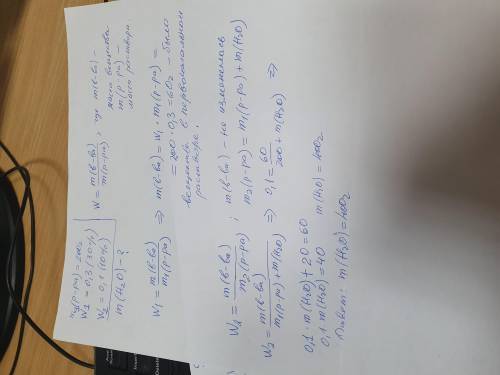 m₁(р-ра) = 200г
W₁ = 0,3 (30%)
W₂ = 0,1 (10%)
m(H₂O) - ?
W = m(в-ва) / m(р-ра), где m(в-ва) -
масса вещества
m(р-ра) -
масса раствора
W₁ = m(в-ва) / m₁(р-ра) ⇒ m(в-ва) = W₁ · m₁(р-ра) =
= 200 · 0,3 = 60г - было
вещества в первоначальном
растворе.
W₂ = m(в-ва) / m₂(р-ра) ; m(в-ва) - не изменилась
m₂(р-ра) = m₁(р-ра) + m(H₂O)
W₂ = m(в-ва) / m₁(р-ра) + m(H₂O) ⇒ 0,1 = 60 / 200 + m(H₂O) ⇒
0,1 · m(H₂O) + 20 = 60
0,1 · m(H₂O) = 40 m(H₂O) = 400г
Ответ: m(H₂O) = 400г